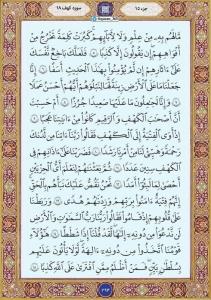 جزء ١٥
سوره کهف ١٨
مَّا لَهُم بِهِ مِنْ عِلْمٍ وَلَا لِآبَائِهِمْ كَبُرَتْ كَلِمَةً تَخْرُجُ مِنْ
أَفْوَاهِهِمْ إِن يَقُولُونَ إِلَّا كَذِبًا ٥ فَلَعَلَّكَ بَاخِعٌ نَّفْسَكَ
عَلَىٰ آثَارِهِمْ إِن لَّمْ يُؤْمِنُوا بِهَٰذَا الْحَدِيثِ أَسَفًا ٦ إِنَّا
جَعَلْنَا مَا عَلَى الْأَرْضِ زِينَةً لَّهَا لِنَبْلُوَهُمْ أَيُّهُمْ أَحْسَنُ عَمَلًا
٧ وَإِنَّا لَجَاعِلُونَ مَا عَلَيْهَا صَعِيدًا جُرُزًا ٨ أَمْ حَسِبْتَ
أَنَّ أَصْحَابَ الْكَهْفِ وَالرَّقِيمِ كَانُوا مِنْ آيَاتِنَا عَجَبًا ٩
إِذْ أَوَى الْفِتْيَةُ إِلَى الْكَهْفِ فَقَالُوا رَبَّنَا آتِنَا مِن لَّدُنكَ
رَحْمَةً وَهَيِّئْ لَنَا مِنْ أَمْرِنَا رَشَدًا ١٠ فَضَرَبْنَا عَلَىٰ آذَانِهِمْ فِي
الْكَهْفِ سِنِينَ عَدَدًا ١١ ثُمَّ بَعَثْنَاهُمْ لِنَعْلَمَ أَيُّ الْحِزْبَيْنِ
أَحْصَىٰ لِمَا لَبِثُوا أَمَدًا ١٢ نَّحْنُ نَقُصُّ عَلَيْكَ نَبَأَهُم بِالْحَقِّ
إِنَّهُمْ فِتْيَةٌ آمَنُوا بِرَبِّهِمْ وَزِدْنَاهُمْ هُدًى ١٣ وَرَبَطْنَا
عَلَىٰ قُلُوبِهِمْ إِذْ قَامُوا فَقَالُوا رَبُّنَا رَبُّ السَّمَاوَاتِ وَالْأَرْضِ
لَن نَّدْعُوَ مِن دُونِهِ إِلَٰهًا لَّقَدْ قُلْنَا إِذًا شَطَطًا ١٤ هَٰؤُلَاءِ
قَوْمُنَا اتَّخَذُوا مِن دُونِهِ آلِهَةً لَّوْلَا يَأْتُونَ عَلَيْهِم
بِسُلْطَانٍ بَيِّنٍ فَمَنْ أَظْلَمُ مِمَّنِ افْتَرَىٰ عَلَى اللَّهِ كَذِبًا ١٥
٢٩٤